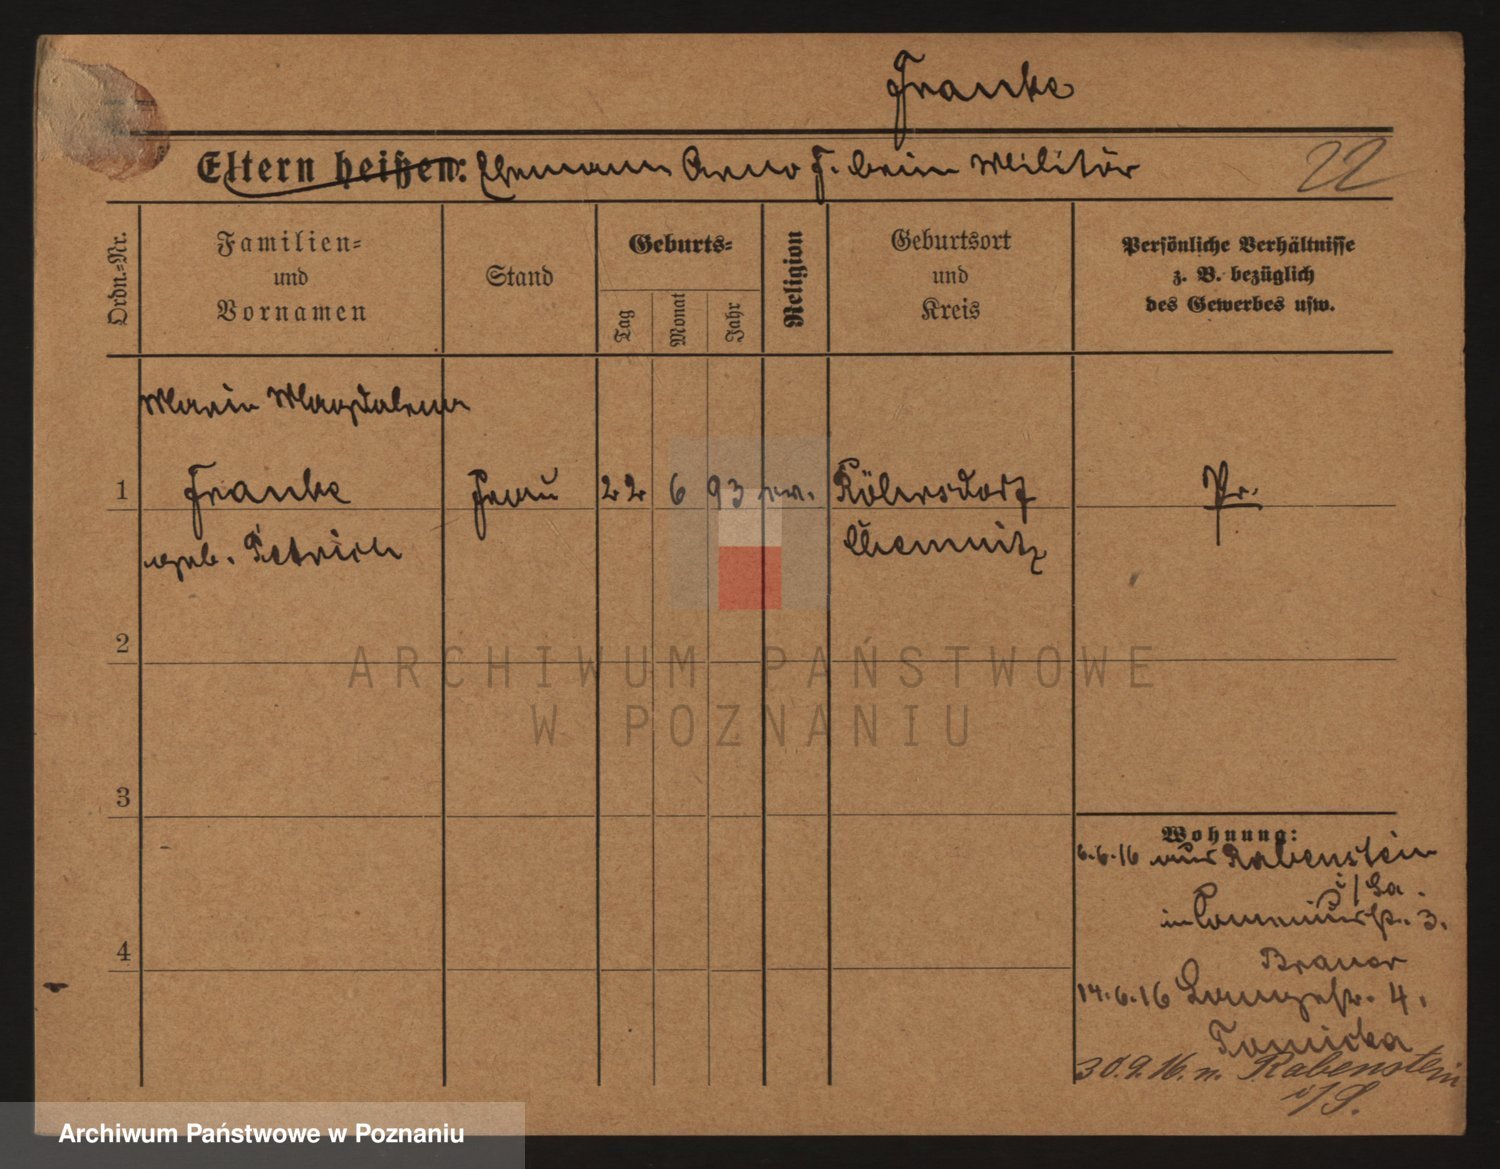 Franke
Eltern heißen: Ehemann Arno F. beim Militär
22
Ordn.-Nr.
Familien-
und
Vornamen
Stand
Geburts-
Tag
Monat
Jahr
Religion
Geburtsort
und
Kreis
Persönliche Verhältnisse
z. B. bezüglich
des Gewerbes usw.
Marie Magdalena
1 Franke Frau 22 6 93 ev. Röhrsdorf Pr.
geb. Petrich Chemnitz
2
3
4
Wohnung:
6.6.16 aus Rabenstein
i/Sa.
in Comeniusstr. 3.
Brauer
14.6.16 Langestr. 4.
Tomicka
30.9.16. n. Rabenstein
i/S.
ARCHIWUM PAŃSTWOWE
W POZNANIU
Archiwum Państwowe w Poznaniu